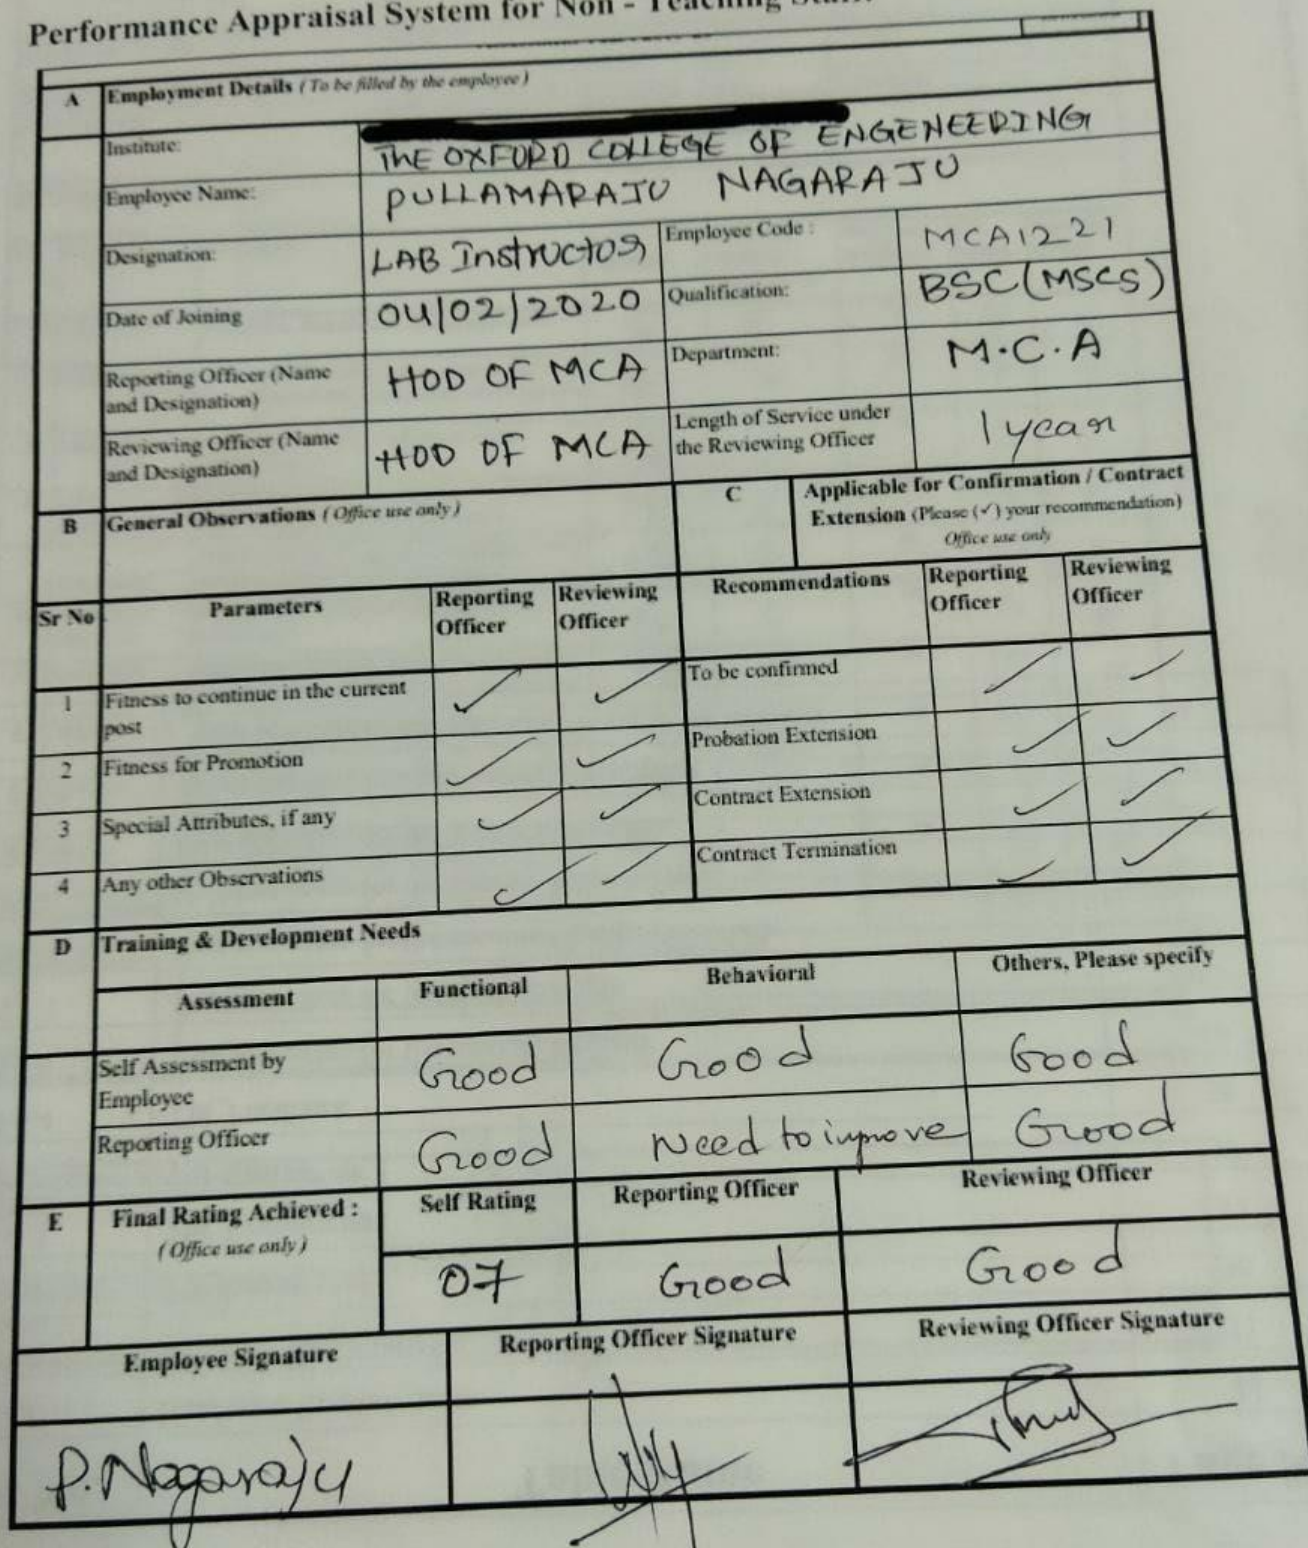 Performance Appraisal System for Non - Teaching
A Employment Details ( To be filled by the employee )
Institute: THE OXFORD COLLEGE OF ENGENEERING
Employee Name: PULLAMARAJU NAGARAJU
Designation: LAB Instructor Employee Code : MCA1221
Date of Joining 04/02/2020 Qualification: BSC(MSCS)
Reporting Officer (Name and Designation) HOD OF MCA Department: M.C.A
Reviewing Officer (Name and Designation) HOD OF MCA Length of Service under the Reviewing Officer 1 year
B General Observations ( Office use only )
C Applicable for Confirmation / Contract
Extension (Please (✓) your recommendation)
Office use only
Sr No Parameters Reporting Officer Reviewing Officer Recommendations Reporting Officer Reviewing Officer
1 Fitness to continue in the current post ✓ ✓ To be confirmed ✓ ✓
2 Fitness for Promotion ✓ ✓ Probation Extension ✓ ✓
3 Special Attributes, if any ✓ ✓ Contract Extension ✓ ✓
4 Any other Observations ✓ ✓ Contract Termination ✓ ✓
D Training & Development Needs
Assessment Functional Behavioral Others, Please specify
Self Assessment by Employee Good Good Good
Reporting Officer Good Need to improve Good
E Final Rating Achieved : Self Rating Reporting Officer Reviewing Officer
( Office use only ) 07 Good Good
Employee Signature Reporting Officer Signature Reviewing Officer Signature
P.Nagaraju